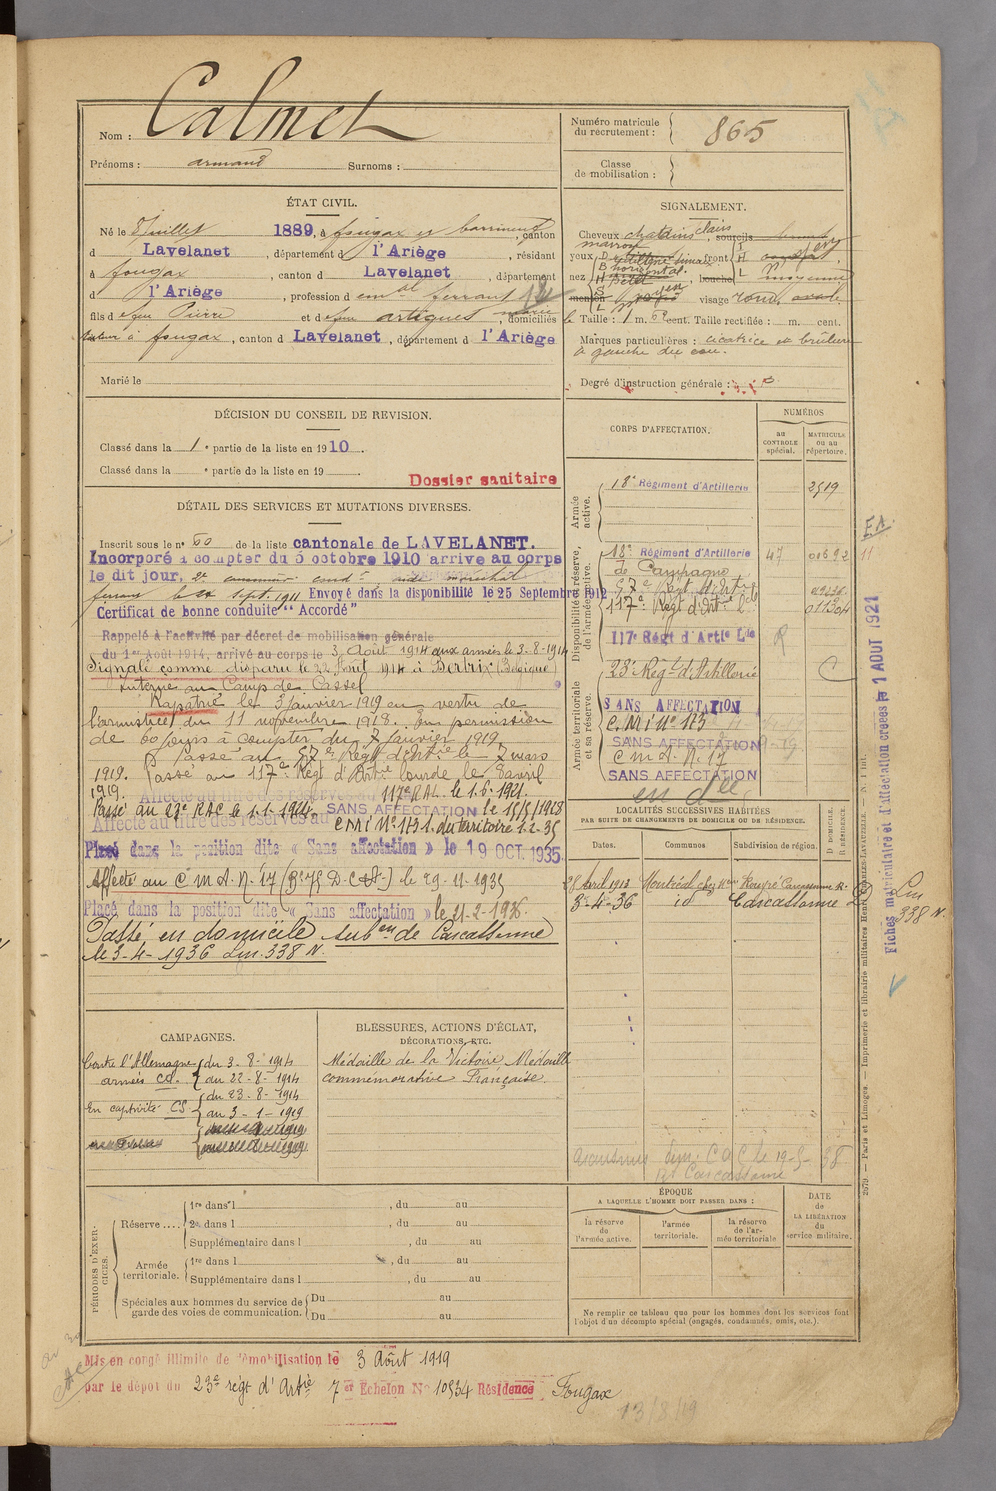 Nom : Calmet
Prénoms : armand Surnoms :
Numéro matricule du recrutement : 865
Classe de mobilisation :
ÉTAT CIVIL.
Né le 8 Juillet 1889, à fougax et barrineuf, canton
d Lavelanet, département d l'Ariège, résidant
à fougax, canton d Lavelanet, département
d l'Ariège, profession d ferrant
fils d efeu Pierre et d efeu artigues, domiciliés
à fougax, canton d Lavelanet, département d l'Ariège
Marié le
SIGNALEMENT.
Cheveux chatains clairs, sourcils
marron
yeux front
horizontal.
nez bouche moyenne
menton visage rond, ovale
Taille : 1 m. 63 cent. Taille rectifiée : m. cent.
Marques particulières : cicatrice et brûlure
à gauche du cou.
Degré d'instruction générale : 3
DÉCISION DU CONSEIL DE REVISION.
Classé dans la 1e partie de la liste en 1910.
Classé dans la e partie de la liste en 19 .
Dossier sanitaire
DÉTAIL DES SERVICES ET MUTATIONS DIVERSES.
Inscrit sous le n° 60 de la liste cantonale de LAVELANET.
Incorporé à compter du 5 octobre 1910 arrive au corps
le dit jour, 2e cond. aide maréchal
ferrant le 22 Sept. 1911 Envoyé dans la disponibilité le 25 Septembre 1912
Certificat de bonne conduite "Accordé"
Rappelé à l'activité par décret de mobilisation générale
du 1er Août 1914, arrivé au corps le 3 Août 1914 aux armées le 3-8-1914
Signalé comme disparu le 22 Août 1914 à Bertrix (Belgique)
Interné au Camp de Cassel
Rapatrié le 3 janvier 1919 en vertu de
l'armistice du 11 novembre 1918. En permission
de 60 jours à compter du 7 janvier 1919
Passé au 57e Régt d'Artie le 7 mars
1919. Passé au 117e Régt d'Artie lourde le 8 avril
1919. 117e RAL le 1.6.1921.
Passé au 23e RAC le 1.1.1924. SANS AFFECTATION le 15/5/1928
Affecté au titre des réserves au CMI N° 173 1. du territoire 1-2-35
Placé dans la position dite « Sans affectation » le 19 OCT. 1935
Affecté au C M A. N° 17 le 29-11-1935
Placé dans la position dite « Sans affectation » le 21-2-1936
Passé en domicile subon de Carcassonne
le 3-4-1936 Lm. 338 N.
CORPS D'AFFECTATION.
NUMÉROS
au CONTROLE spécial.
MATRICULE ou au répertoire.
Armée active.
18e Régiment d'Artillerie 2519
Disponibilité et réserve, de l'armée active.
18e Régiment d'Artillerie 47 01692
de Campagne
57e Régt d'Artie
117e Régt d'Artie Lde 01304
117e Régt d'Artie Lde R
23e Régt d'Artillerie C
Armée territoriale et sa réserve.
SANS AFFECTATION
C.M.I N° 173
SANS AFFECTATION
C M A. N° 17
SANS AFFECTATION
LOCALITÉS SUCCESSIVES HABITÉES
PAR SUITE DE CHANGEMENTS DE DOMICILE OU DE RÉSIDENCE.
Dates. Communes. Subdivision de région. D DOMICILE. R RÉSIDENCE.
28 Avril 1913 Montréal chez Mr Rougé Carcassonne R.
3-4-36 id Carcassonne D
Lm
338 N.
EA
11
Fiches matriculaire et d'affectation créées le 1 AOUT 1921
CAMPAGNES.
Contre l'Allemagne { du 3-8-1914
armées CD. { au 22-8-1914
En captivité CS { du 23-8-1914
au 3-1-1919
BLESSURES, ACTIONS D'ÉCLAT,
DÉCORATIONS, ETC.
Médaille de la Victoire Médaille
commémorative Française.
Carcassonne
PÉRIODES D'EXERCICES.
Réserve .... 1re dans l , du au
2e dans l , du au
Supplémentaire dans l , du au
Armée territoriale. 1re dans l , du au
Supplémentaire dans l , du au
Spéciales aux hommes du service de garde des voies de communication. Du au
Du au
ÉPOQUE
A LAQUELLE L'HOMME DOIT PASSER DANS :
la réserve de l'armée active.
l'armée territoriale.
la réserve de l'armée territoriale
DATE de LA LIBÉRATION du service militaire.
Ne remplir ce tableau que pour les hommes dont les services font
l'objet d'un décompte spécial (engagés, condamnés, omis, etc.).
2679. — Paris et Limoges. — Imprimerie et librairie militaires Henri CHARLES-LAVAUZELLE.
Mis en congé illimité de démobilisation le 3 Août 1919
par le dépôt du 23e régt d'Artie 7er Echelon N° 10934 Résidence Fougax
13/8/19